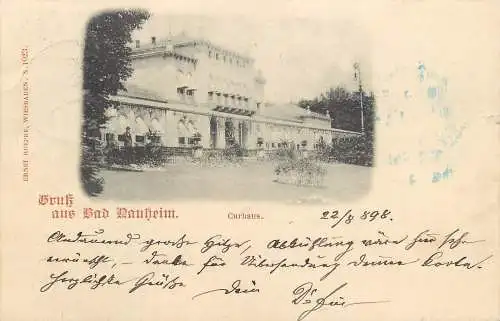 ERNST HOEPKE, WIESBADEN, N. 1023.
Gruß
aus Bad Nauheim.
Curhaus.
22/8 898.
Andauernd große Hitze, Abkühlung wäre sehr
erwünscht, — danke für Übersendung Deiner Karte.
herzlichste Grüße Dein